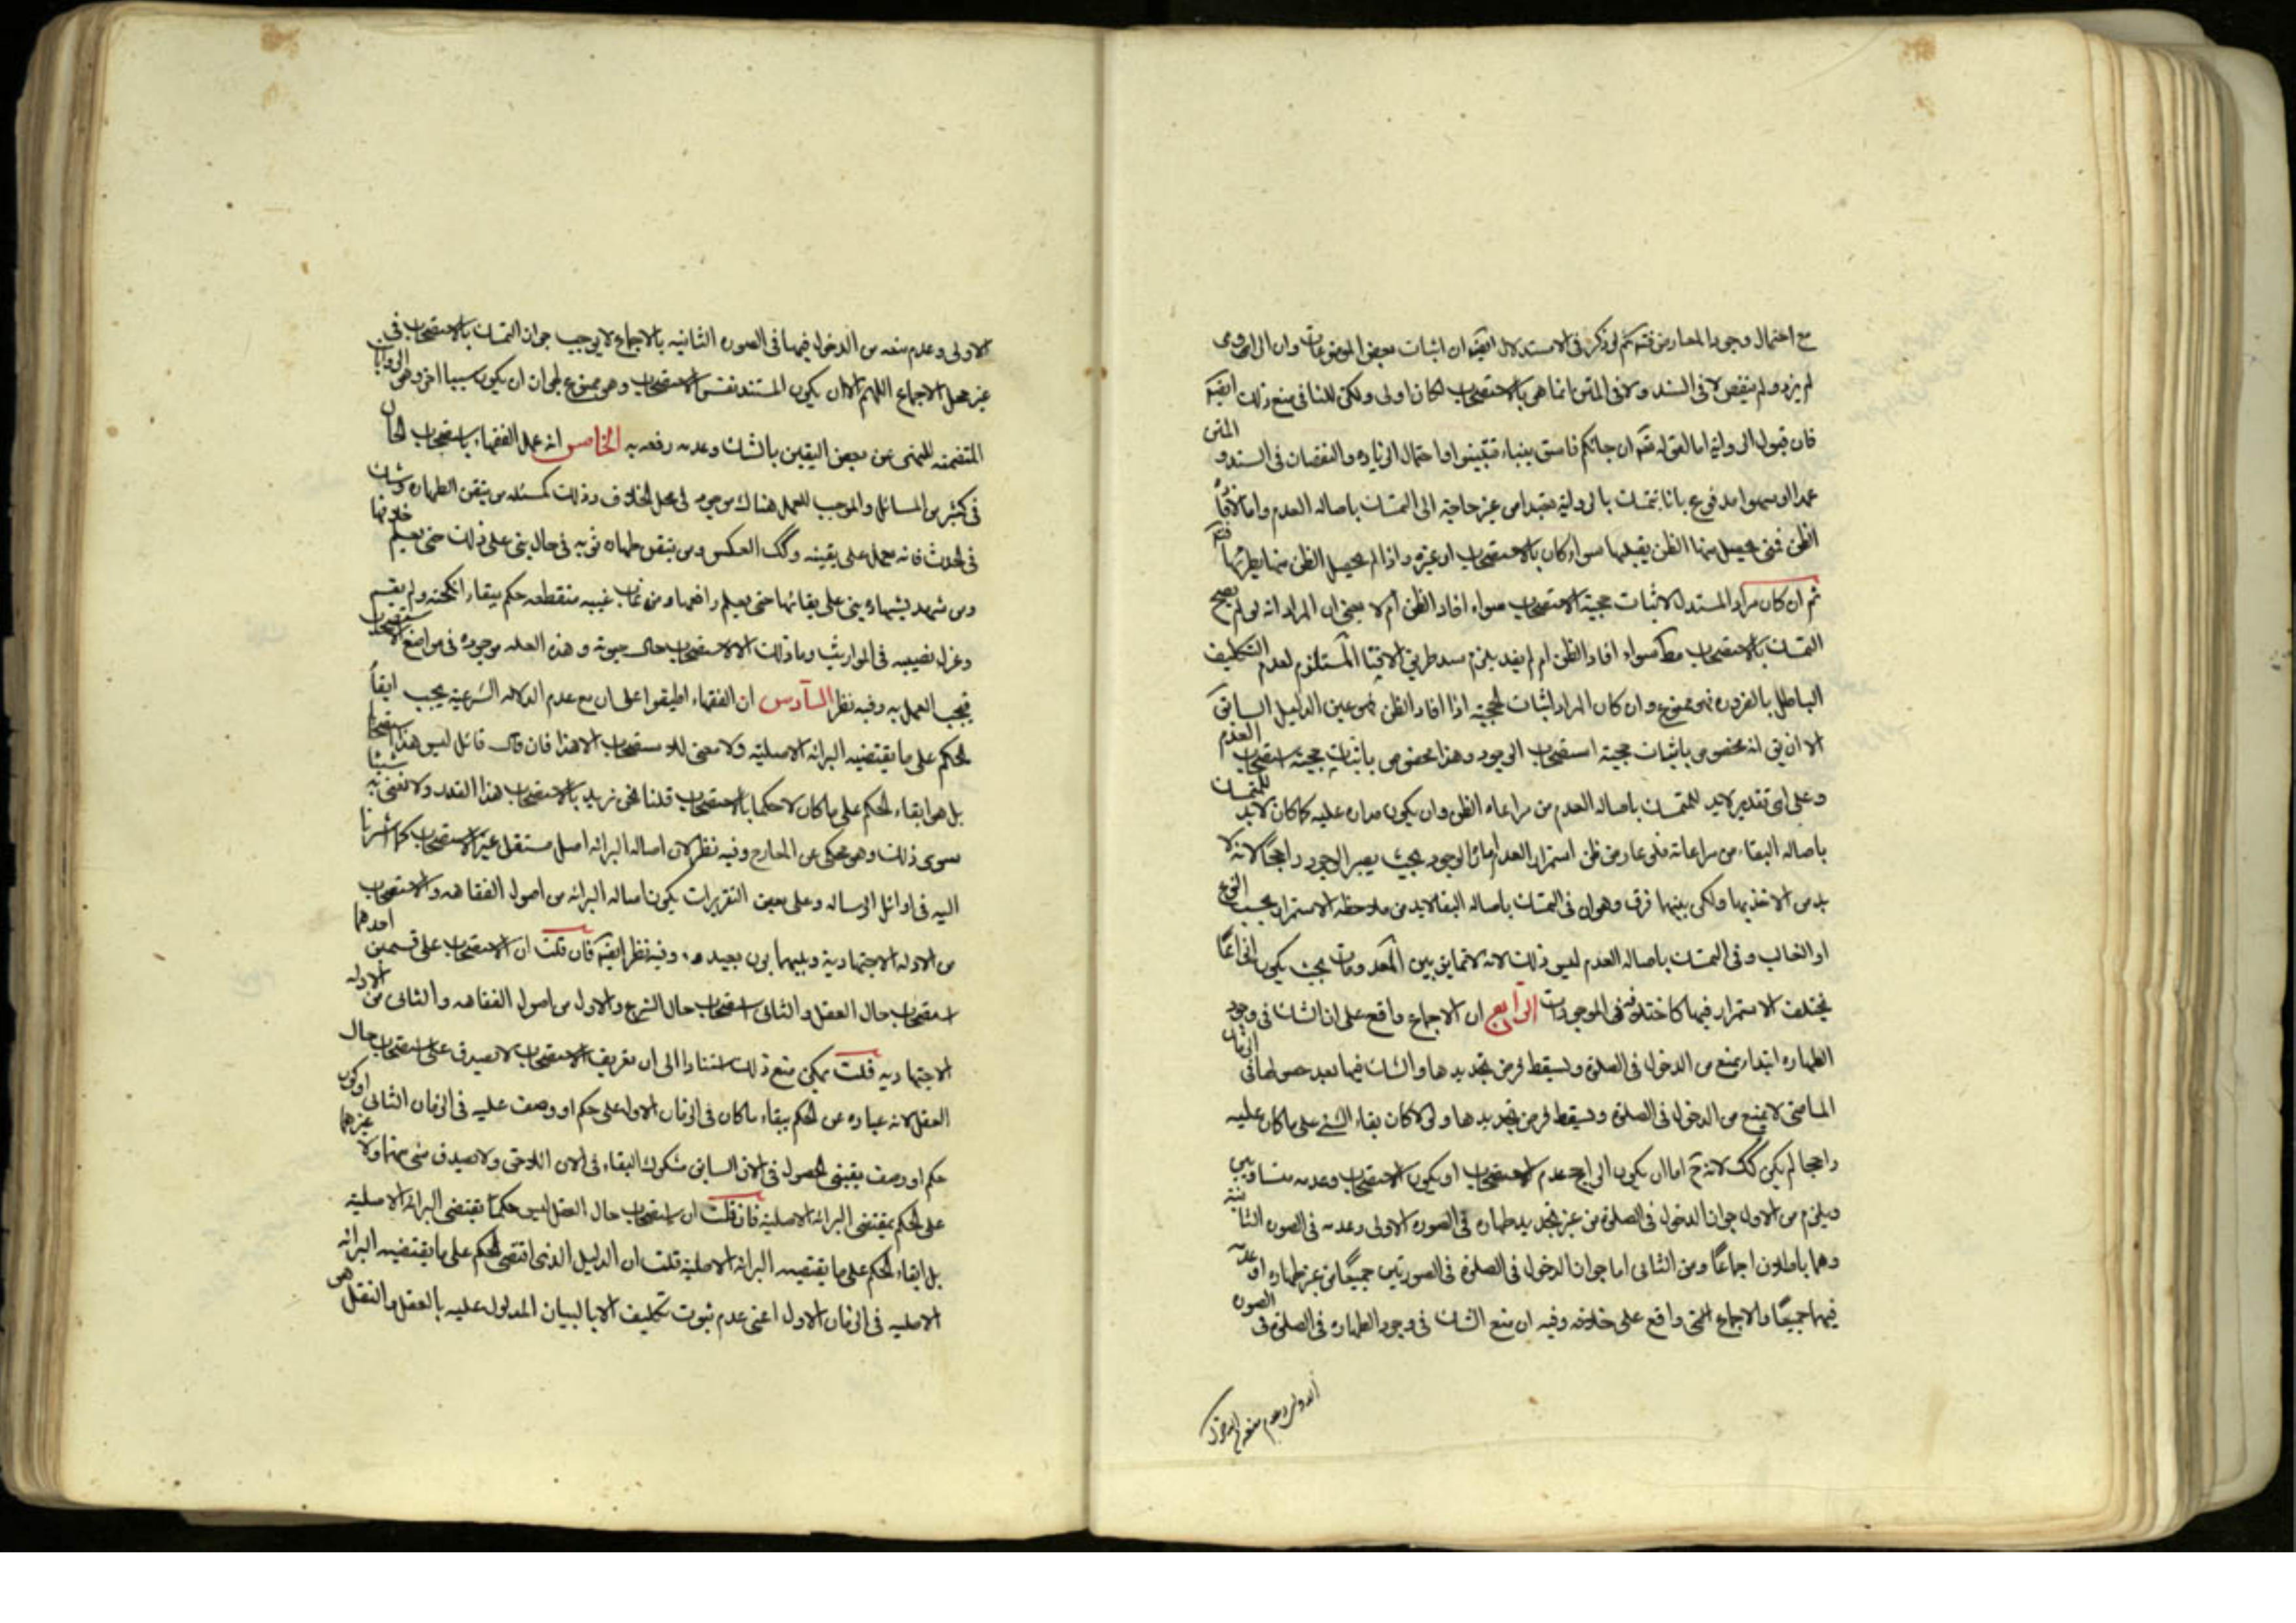 مع احتمال وجود المعارض فتم كم لو ذكر فى الاستدلال ايضا ان اثبات بعض الموضوعات وان الراوى
لم يزد ولم ينقص لا فى السند ولا فى المتن انما هى بالاستصحاب لكان اولى ولكن للنافى منع ذلك ايضا
فان قبول الرواية اما لقوله تعالى ان جائكم فاسق بنباء فتبينوا واحتمال الزياده والنقصان فى السند و المتن
عمدا او سهوا مدفوع بانا نتمسك بالرواية تعبدا من غير حاجة الى التمسك باصاله العدم واما لافادة
الظن فمتى حصل منها الظن يقبلها سواء كان بالاستصحاب او غيره واذا لم يحصل الظن منها يطرحها
ثم ان كان مراد المستدل لاثبات حجية الاستصحاب سواء افاد الظن أم لا بمعنى ان المراد انه لو لم يصح
التمسك بالاستصحاب مط سواء افاد الظن ام لم يفد يلزم سد طريق الافتاء المستلزم لعدم التكليف
الباطل بالضروره فهو ممنوع وان كان المراد اثبات الحجية اذا افاد الظن فهو عين الدليل السابق
الا ان يق انه مخصوص باثبات حجية استصحاب الوجود وهذا مخصوص باثبات حجية استصحاب العدم
وعلى اى تقدير لابد للمتمسك باصاله العدم من مراعاه الظن وان يكون مداره عليه كما كان لابد للمتمسك
باصاله البقاء من مراعاته فلو عارض ظن استمرار العدم امارة الوجود بحيث يصير الوجود راجحا لانه لا
بد من الاخذ بها ولكن بينهما فرق وهو ان فى التمسك باصاله البقا لابد من ملاحظه الاستمرار بحسب النوع
او الغالب وفى التمسك باصاله العدم ليس ذلك لانه لا تمايز بين المعدومات بحيث يكون انواعا
يختلف الاستمرار فيها كما اختلف فى الموجودات الرابع ان الاجماع واقع على ان الشك فى وجود
الطهاره ابتداء يمنع من الدخول فى الصلوة ولا يسقط فرض تجديدها والشك فيها بعد حصولها فى الزمان
الماضى لا يمنع من الدخول فى الصلوة ويسقط فرض تجديدها ولولا كان بقاء الشئ على ما كان عليه
راجحا لم يكن كك لانه ح اما ان يكون الراجح عدم الاستصحاب او يكون الاستصحاب وعدمه متساويين
ويلزم من الاول جواز الدخول فى الصلوة من غير تجديد طهاره فى الصوره الاولى وعدمه فى الصوره الثانية
وهما باطلان اجماعًا ومن الثانى اما جواز الدخول فى الصلوة فى الصورتين جميعًا من غير طهاره او عدمه
فيهما جميعًا والاجماع واقع على خلافه وفيه ان منع الشك فى وجود الطهاره فى الصلوة فى الصوره
الاولى وعدم منعه من الدخول
الاولى وعدم منعه من الدخول فيها فى الصوره الثانيه بالاجماع لا يوجب جواز التمسك بالاستصحاب فى
غير محل الاجماع اللهم الا ان يكون المستند نفس الاستصحاب وهو ممنوع لجواز ان يكون سببا اخر وهى الروايات
المتضمنه للنهى عن نقض اليقين بالشك وعدم رفعه به الخامس انه عمل الفقهاء باستصحاب الحال
فى كثير من المسائل والموجب للعمل هناك موجود فى محل الخلاف وذلك كمسئله من تيقن الطهاره وشك
فى الحدث فانه يعمل على يقينه وكك العكس ومن تيقن طهاره ثوبه فى حال بنى على ذلك حتى يعلم خلافها
ومن شهد بشهاده بنى على بقائها حتى يعلم رافعها ومن غاب غيبه منقطعه حكم ببقاء انكحته ولم يقسم
وعزل نصيبه فى المواريث وما ذلك الا لاستصحاب حال حيوته وهذه العله موجوده فى مواضع الاستصحاب
فيجب العمل به وفيه نظر السادس ان الفقهاء اطبقوا على ان مع عدم الدلاله الشرعية يجب ابقاء
الحكم على ما يقتضيه البرائه الاصلية ولا معنى للاستصحاب الا هذا فان قال قائل ليس هذا استصحابا
بل هو ابقاء الحكم على ما كان لا حكما بالاستصحاب قلنا نحن نريد بالاستصحاب هذا القدر ولا نعنى به شيئا
سوى ذلك وهو محكى عن المعارج وفيه نظر لان اصاله البرائه اصل مستقل غير الاستصحاب كما اشرنا
اليه فى اوائل الرساله وعلى بعض التقريرات يكون اصاله البرائه من اصول الفقاهه والاستصحاب
من الادله الاجتهادية وبينهما بون بعيد وفيه نظر ايضا فان قلت ان الاستصحاب على قسمين احدهما
استصحاب حال العقل والثانى استصحاب حال الشرع والاول من اصول الفقاهه والثانى من الادله
الاجتهاديه قلت يمكن منع ذلك استنادا الى ان تعريف الاستصحاب لا يصدق على استصحاب حال
العقل لانه عباره عن الحكم ببقاء ما كان فى الزمان الاول على حكم او وصف عليه فى الزمان الثانى او كون
حكم او وصف يقينى الحصول فى الان السابق مشكوك البقاء فى الان اللاحق ولا يصدق شئ منهما ولا غيرهما
على الحكم بمقتضى البرائة الاصلية فان قلت ان استصحاب حال العقل ليس حكما بمقتضى البرائة الاصلية
بل ابقاء الحكم على ما يقتضيه البرائه الاصلية قلت ان الدليل الذى اقتضى الحكم على ما يقتضيه البرائه
الاصليه فى الزمان الاول اعنى عدم ثبوت تكليف الا بالبيان المدلول عليه بالعقل والنقل هى